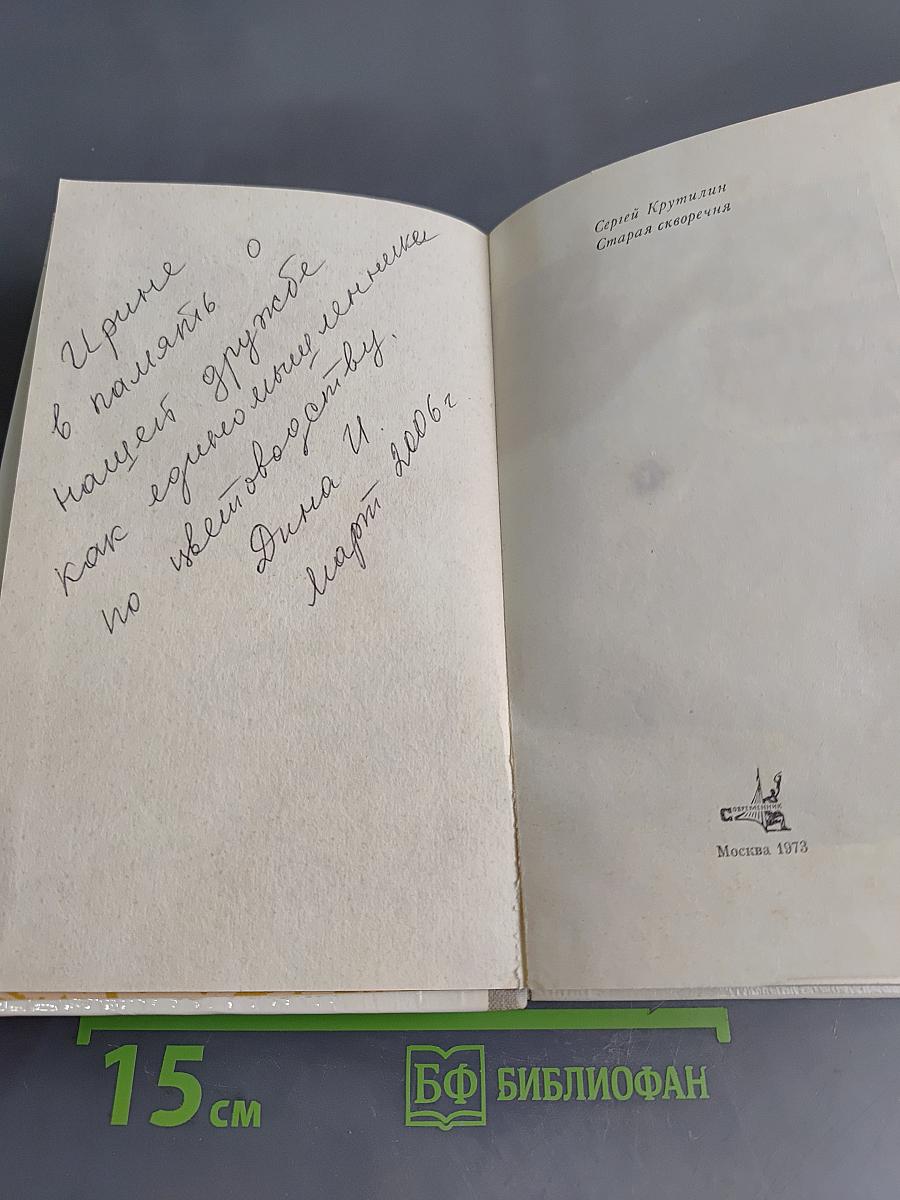 Ирине
в память о
нашей дружбе
как единомышленника
по цветоводству.
Дина И.
март 2006 г
Сергей Крутилин
Старая скворечня
СОВРЕМЕННИК
Москва 1973
15 см
БФ БИБЛИОФАН